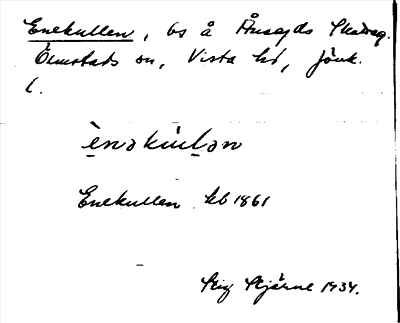 Enekullen, bs å Åsegds
Ölmstads sn, Vista hd, Jönk.
l.
ènəkùlən
Enekullen kb 1861
Stig Stjärne 1934.